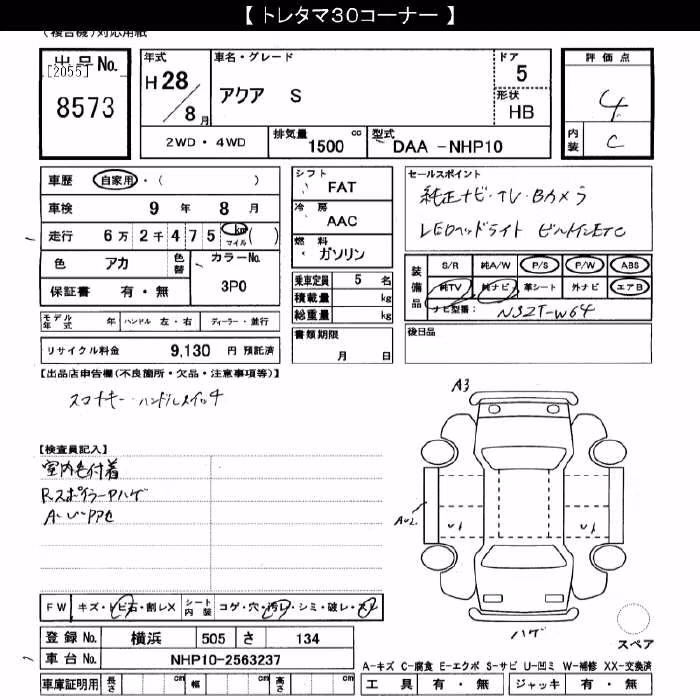 【 トレタマ30コーナー 】
(複合機)対応用紙
出品No.
[2055]
8573
年式
H 28
/ 8 月
車名・グレード
アクア S
ドア
5
形状
HB
評価点
4
内装
C
2WD・4WD
排気量
1500 cc
型式
DAA -NHP10
車歴 自家用・( )
車検 9 年 8 月
走行 6万 2千 4 7 5 km マイル ( )
色 アカ 色替 カラーNo. 3P0
保証書 有・無
シフト
FAT
冷房
AAC
燃料
ガソリン
乗車定員 5 名
積載量 kg
総重量 kg
書類期限
月 日
セールスポイント
純正ナビ・TV・Bカメラ
LEDヘッドライト ビルトインETC
装備品
S/R 純A/W P/S P/W ABS
純TV 純ナビ 革シート 外ナビ エアB
ナビ型番: NSZT-W64
後日品
モデル年式 年 ハンドル 左・右 ディーラー・並行
リサイクル料金 9,130 円 預託済
【出品店申告欄(不良箇所・欠品・注意事項等)】
スマートキー・ハンドルスイッチ
【検査員記入】
室内色付着
RスポイラーPハゲ
A3
AU2
U1
U1
ハゲ
スペア
FW キズ・トビ石・割レX シート内装 コゲ・穴・汚レ・シミ・破レ・スレ
登録No. 横浜 505 さ 134
車台No. NHP10-2563237
車庫証明用 長さ cm 幅 cm 高さ cm
A-キズ C-腐食 E-エクボ S-サビ U-凹ミ W-補修 XX-交換済
工具 有・無 ジャッキ 有・無